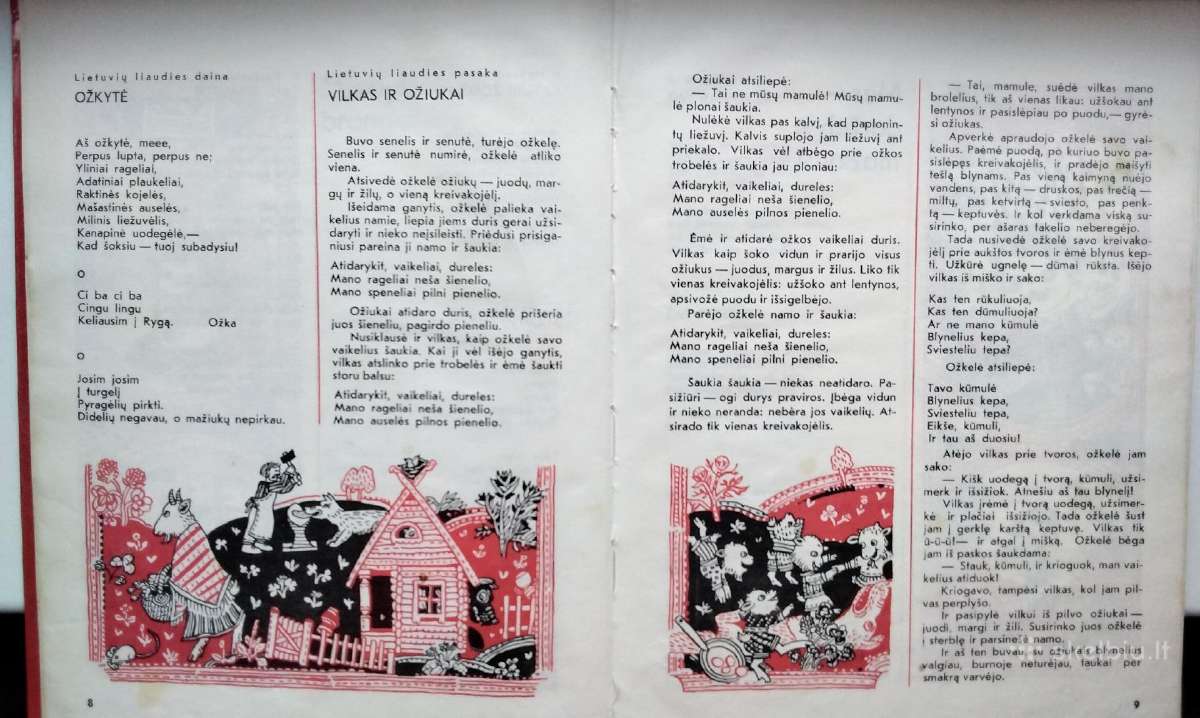 Lietuvių liaudies daina
OŽKYTĖ
Aš ožkytė, meee,
Perpus lupta, perpus ne;
Yliniai rageliai,
Adatiniai plaukeliai,
Raktinės kojelės,
Mašastinės auselės,
Milinis liežuvėlis,
Kanapinė uodegėlė,—
Kad šoksiu — tuoj subadysiu!
O
Ci ba ci ba
Cingu lingu
Keliausim į Rygą. Ožka
O
Josim josim
Į turgelį
Pyragėlių pirkti.
Didelių negavau, o mažiukų nepirkau.
Lietuvių liaudies pasaka
VILKAS IR OŽIUKAI
Buvo senelis ir senutė, turėjo ožkelę.
Senelis ir senutė numirė, ožkelė atliko
viena.
Atsivedė ožkelė ožiukų — juodų, mar-
gų ir žilų, o vieną kreivakojėlį.
Išeidama ganytis, ožkelė palieka vai-
kelius namie, liepia jiems duris gerai užsi-
daryti ir nieko neįsileisti. Priėdusi prisiga-
niusi pareina ji namo ir šaukia:
Atidarykit, vaikeliai, dureles:
Mano rageliai neša šienelio,
Mano speneliai pilni pienelio.
Ožiukai atidaro duris, ožkelė prišeria
juos šieneliu, pagirdo pieneliu.
Nusiklausė ir vilkas, kaip ožkelė savo
vaikelius šaukia. Kai ji vėl išėjo ganytis,
vilkas atslinko prie trobelės ir ėmė šaukti
storu balsu:
Atidarykit, vaikeliai, dureles:
Mano rageliai neša šienelio,
Mano auselės pilnos pienelio.
8
Ožiukai atsiliepė:
— Tai ne mūsų mamulė! Mūsų mamu-
lė plonai šaukia.
Nulėkė vilkas pas kalvį, kad paplonin-
tų liežuvį. Kalvis suplojo jam liežuvį ant
priekalo. Vilkas vėl atbėgo prie ožkos
trobelės ir šaukia jau ploniau:
Atidarykit, vaikeliai, dureles:
Mano rageliai neša šienelio,
Mano auselės pilnos pienelio.
Ėmė ir atidarė ožkos vaikeliai duris.
Vilkas kaip šoko vidun ir prarijo visus
ožiukus — juodus, margus ir žilus. Liko tik
vienas kreivakojėlis: užšoko ant lentynos,
apsivožė puodu ir išsigelbėjo.
Parėjo ožkelė namo ir šaukia:
Atidarykit, vaikeliai, dureles:
Mano rageliai neša šienelio,
Mano speneliai pilni pienelio.
Šaukia šaukia — niekas neatidaro. Pa-
sižiūri — ogi durys praviros. Įbėga vidun
ir nieko neranda: nebėra jos vaikelių. At-
sirado tik vienas kreivakojėlis.
— Tai, mamule, suėdė vilkas mano
brolelius, tik aš vienas likau: užšokau ant
lentynos ir pasislėpiau po puodu,— gyrė-
si ožiukas.
Apverkė apraudojo ožkelė savo vai-
kelius. Paėmė puodą, po kuriuo buvo pa-
sislėpęs kreivakojėlis, ir pradėjo maišyti
tešlą blynams. Pas vieną kaimyną nuėjo
vandens, pas kitą — druskos, pas trečią —
miltų, pas ketvirtą — sviesto, pas penk-
tą — keptuvės. Ir kol verkdama viską su-
sirinko, per ašaras takelio neberegėjo.
Tada nusivedė ožkelė savo kreivako-
jėlį prie aukštos tvoros ir ėmė blynus kep-
ti. Užkūrė ugnelę — dūmai rūksta. Išėjo
vilkas iš miško ir sako:
Kas ten rūkuliuoja,
Kas ten dūmuliuoja?
Ar ne mano kūmulė
Blynelius kepa,
Sviesteliu tepa?
Ožkelė atsiliepė:
Tavo kūmulė
Blynelius kepa,
Sviesteliu tepa,
Eikše, kūmuli,
Ir tau aš duosiu!
Atėjo vilkas prie tvoros, ožkelė jam
sako:
— Kišk uodegą į tvorą, kūmuli, užsi-
merk ir išsižiok. Atnešiu aš tau blynelį!
Vilkas įrėmė į tvorą uodegą, užsimer-
kė ir plačiai išsižiojo. Tada ožkelė šust
jam į gerklę karštą keptuvę. Vilkas tik
ū-ū-ū!— ir atgal į mišką. Ožkelė bėga
jam iš paskos šaukdama:
— Stauk, kūmuli, ir krioguok, man vai-
kelius atiduok!
Kriogavo, tampėsi vilkas, kol jam pil-
vas perplyšo.
Ir pasipylė vilkui iš pilvo ožiukai —
juodi, margi ir žili. Susirinko juos ožkelė
į sterblę ir parsinešė namo.
Ir aš ten buvau, su ožiukais blynelius
valgiau, burnoje neturėjau, taukai per
smakrą varvėjo.
9